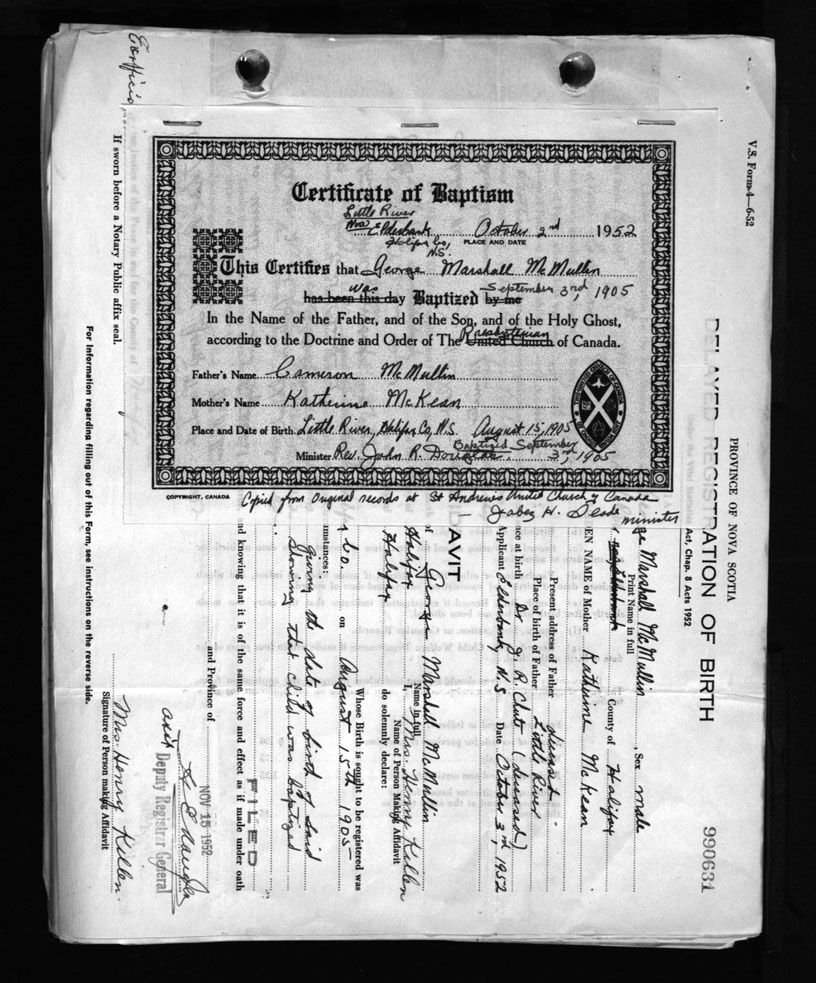 Certificate of Baptism
Little River
Elderbank October 2nd 1952
Halifax Co, PLACE AND DATE
N.S.
This Certifies that George Marshall McMullin
has been this day was Baptized by me September 3rd, 1905
In the Name of the Father, and of the Son, and of the Holy Ghost,
according to the Doctrine and Order of The United Church Presbyterian of Canada.
Father's Name Cameron McMullin
Mother's Name Katherine McKean
Place and Date of Birth Little River, Halifax Co, N.S. August 15, 1905
Baptized September
Minister Rev. John R. Douglas 3rd, 1905
COPYRIGHT, CANADA
Copied from Original records at St Andrews United Church of Canada
— Jabez H. minister
V.S. Form-4—6-52
PROVINCE OF NOVA SCOTIA
DELAYED REGISTRATION OF BIRTH
990631
Act, Chap. 8 Acts 1952
Marshall McMullin, Sex male
Print Name in full
County of Halifax
EN NAME of Mother Katherine McKean
Present address of Father deceased
Place of birth of Father Little River
nce at birth Dr. J. R. (deceased)
Applicant Elderbank, N.S Date October 3rd, 1952
AVIT
of George Marshall McMullin
Name in full
Halifax I, Mrs. Henry Killen
Name of Person Making Affidavit
Halifax do solemnly declare:
Whose Birth is sought to be registered was
Co. on August 15th 1905
mstances:
giving the date of birth of said
showing that child was baptized
nd knowing that it is of the same force and effect as if made under oath
FILED
NOV 15 1952
and Province of
Deputy Registrar General
Mrs. Henry Killen.
Signature of Person making Affidavit
If sworn before a Notary Public affix seal.
For information regarding filling out of this Form, see instructions on the reverse side.